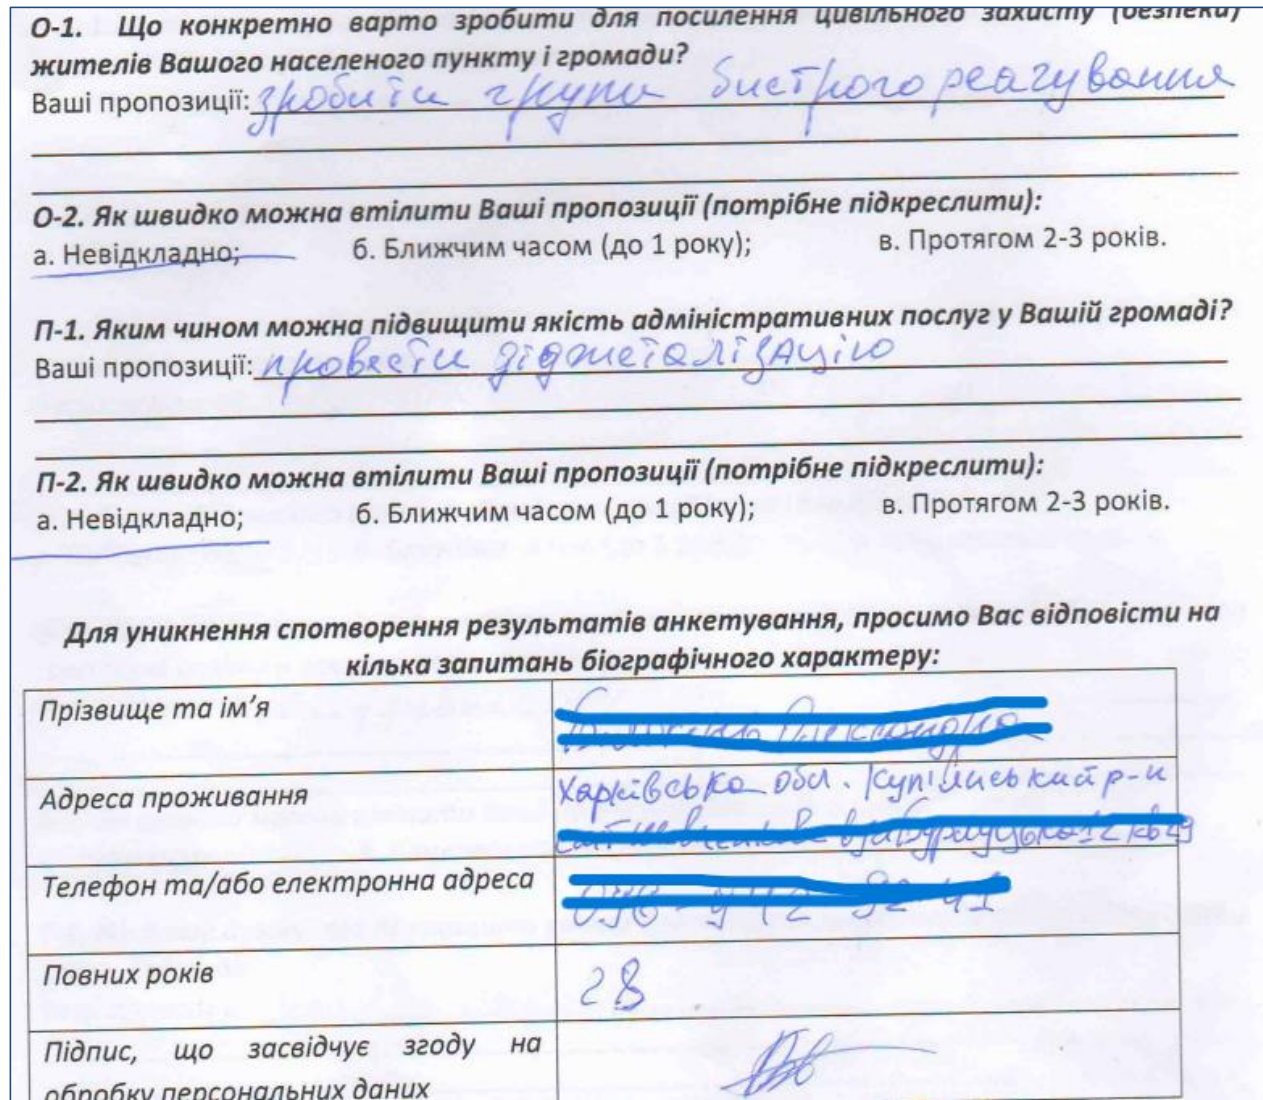 О-1. Що конкретно варто зробити для посилення цивільного захисту (безпеки)
жителів Вашого населеного пункту і громади?
Ваші пропозиції: зробити групи бистрого реагування
О-2. Як швидко можна втілити Ваші пропозиції (потрібне підкреслити):
а. Невідкладно; б. Ближчим часом (до 1 року); в. Протягом 2-3 років.
П-1. Яким чином можна підвищити якість адміністративних послуг у Вашій громаді?
Ваші пропозиції: провести діджеталізацію
П-2. Як швидко можна втілити Ваші пропозиції (потрібне підкреслити):
а. Невідкладно; б. Ближчим часом (до 1 року); в. Протягом 2-3 років.
Для уникнення спотворення результатів анкетування, просимо Вас відповісти на
кілька запитань біографічного характеру:
Прізвище та ім’я
Адреса проживання Харківська обл. Купʼянський р-н
Телефон та/або електронна адреса
Повних років 28
Підпис, що засвідчує згоду на
обробку персональних даних